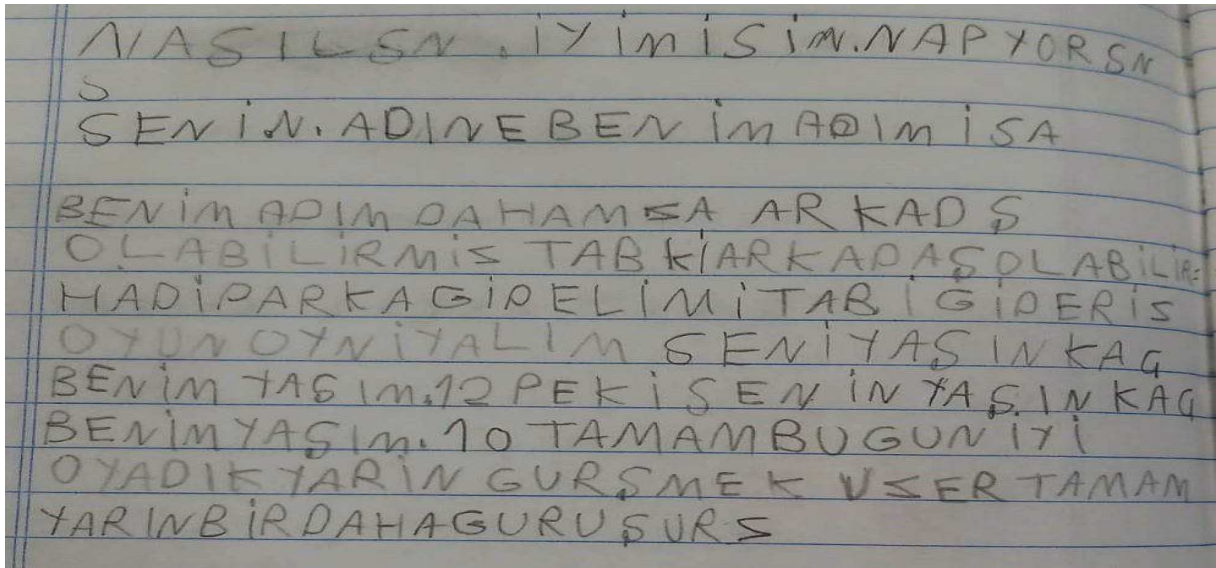 NASILSN . İYİMİSİM. NAPYORSN
S
SENİN. ADINE BENİM ADIM İSA
BENİM ADIM DAHAMSA ARKADŞ
OLABİLİRMİS TABKİ ARKADAŞ OLABİLİR
HADİ PARKA GİDELİMİ TABİ GİDERİS
OYUN OYNİYALIM SENİ YASIN KAG
BENİM YAŞIM. 12 PEKİ SENİN YAŞIN KAG
BENİM YAŞIM. 10 TAMAM BUGUN İYİ
OYADIK YARİN GURŞMEK USER TAMAM
YARIN BİR DAHA GURUŞURS